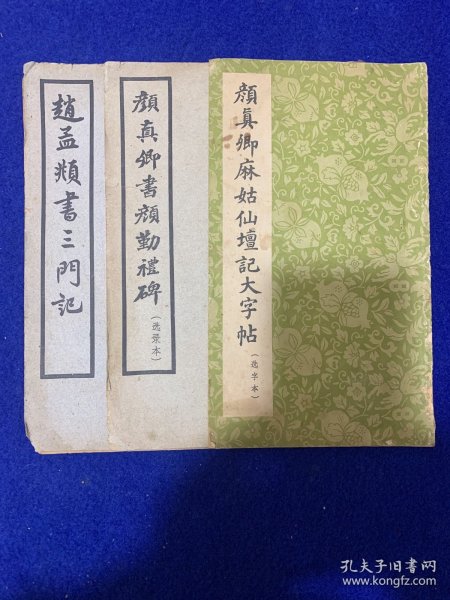 顔真卿麻姑仙壇記大字帖
(选字本)
顔真卿書顔勤禮碑
(选录本)
趙孟頫書三門記
孔夫子旧書网
www.kongfz.com